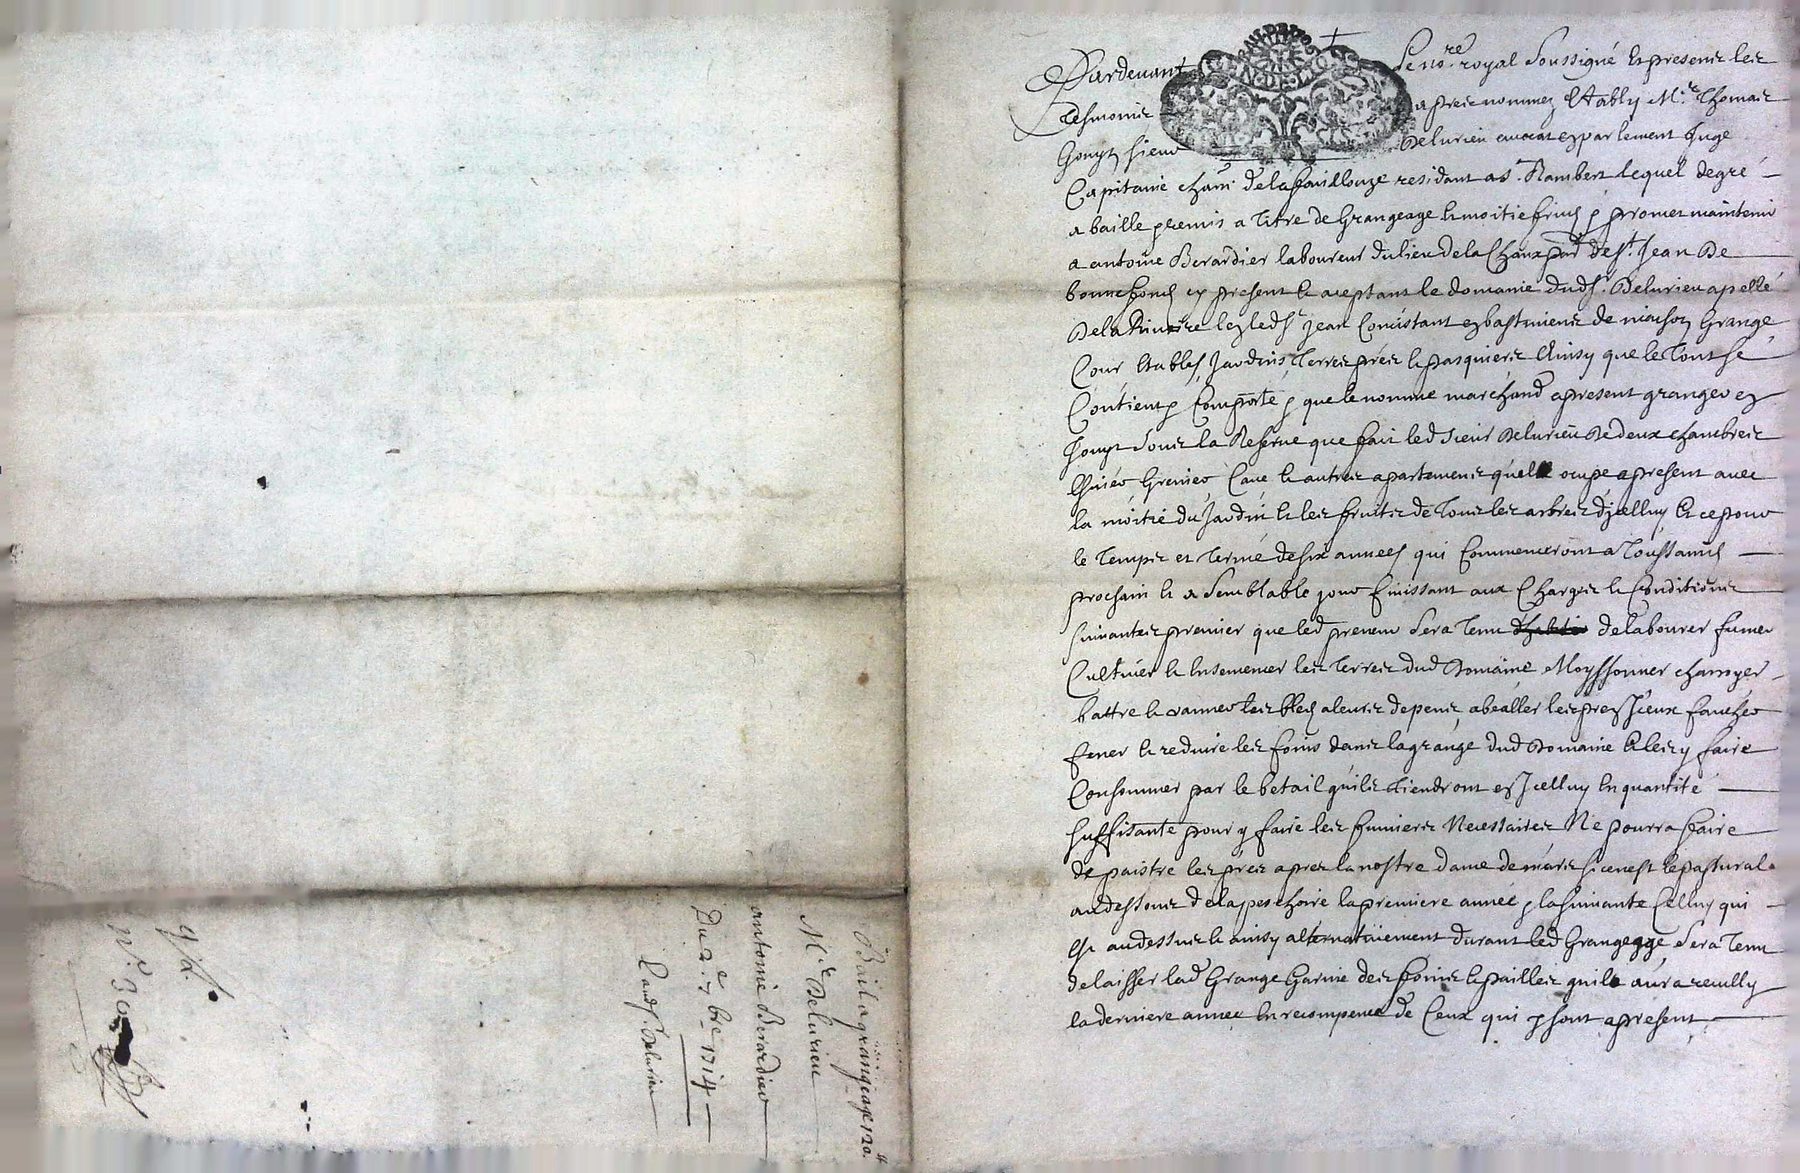 Pardevant Le no.re royal Soussigné Et presents les
tesmoins apres nommez Estably M.e Thomas
Gonyn sieur Delurieu avocat en parlement Juge
Capitaine chatn delafouillouze residant a St. Rambert lequel degré
a baillé et remis a titre de Grangeage et moitié fruits et promet maintenir
a antoine Berardier laboureur du lieu de la Chaux parse de st. Jean De
bonnefonds cy present et aceptant le domaine dudsr. Delurieu apellé
De la Riviere les led st jean Consistant en bastiments de maison Grange
Cour Estables Jardins terres prés et pasquiers Ainsy que le tout se
Contient et Comporte et que le nommé marchand apresent granger en
Jouyt sous la Reserve que fait led sieur Delurieu De deux chambres
Grenier Cave et autres apartements qu'el ocupe apresent avec
la moitié du Jardin et les fruits de tous les arbres d'jcelluy Et ce pour
le temps et terme de six annees qui Commenceront a Toussaints
prochain et a Semblable jour finissant aux Charges et Conditions
suivantes premier que led preneur Sera tenu de labourer fumer
Cultiver et Ensemencer les terres dud Domaine Moyssonner charroyer
battre et vanner les bleds a leurs depens, abealler les pres Jceux faucher
fener et reduire les foins dans la grange dud Domaine Et les y faire
Consommer par le betail qu'ils tiendront en Jcelluy En quantité
suffisante pour y faire les fumiers Necessaires Ne pourra faire
depaistre les prés apres la nostre dame de mars si ce n'est le pastural
au dessous de la peschoire la premiere année et la suivante Celluy qui
Est au dessus et ainsy alternativement durant led Grangeage Sera tenu
de laisser lad Grange Garnie des foins et pailles quil aura recully
la derniere année En recompense de Ceux qui y sont apresent
Bail a grangeage 120.
M.e Delurieu
antoine Berardier
Du 2.e 7bre 1714
Pour led sr. Delurieu
N.o 30